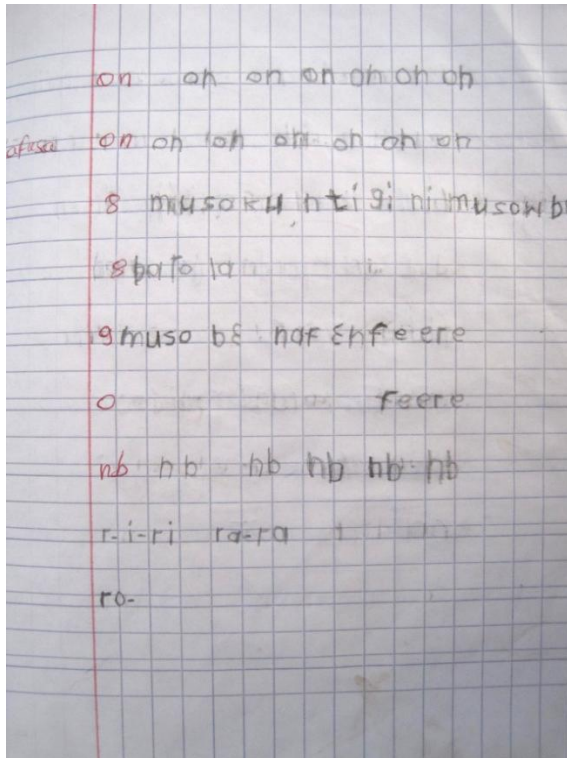 on on on on on on on
afusa on on on on on on on
8 musoku ntigi ni musow b
8 bato la
9 muso bɛ naf ɛnfeere
0 feere
nb nb nb nb nb nb
r-i-ri ra-ra
ro-